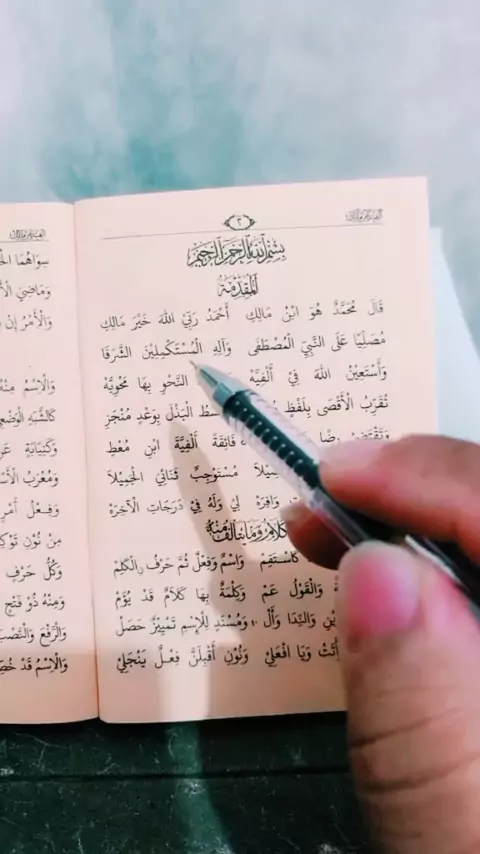 ألفية ابن مالك
٣
بِسْمِ اللهِ الرَّحْمٰنِ الرَّحِيْمِ
اَلْمُقَدِّمَةُ
قَالَ مُحَمَّدٌ هُوَ ابْنُ مَالِكِ أَحْمَدُ رَبِّيْ اللهَ خَيْرَ مَالِكِ
مُصَلِّيًا عَلَى النَّبِيِّ الْمُصْطَفَى وَآلِهِ الْمُسْتَكْمِلِيْنَ الشَّرَفَا
وَأَسْتَعِيْنُ اللهَ فِيْ أَلْفِيَّهْ النَّحْوِ بِهَا مَحْوِيَّهْ
تُقَرِّبُ الْأَقْصَى بِلَفْظٍ الْبَذْلَ بِوَعْدٍ مُنْجَزِ
وَتَقْتَضِيْ رِضًا فَائِقَةً أَلْفِيَّةَ ابْنِ مُعْطِ
مُسْتَوْجِبٌ ثَنَائِيَ الْجَمِيْلَا
وَافِرَهْ لِيْ وَلَهُ فِيْ دَرَجَاتِ الْآخِرَهْ
الْكَلَامُ وَمَا يَتَأَلَّفُ مِنْهُ
كَاسْتَقِمْ وَاسْمٌ وَفِعْلٌ ثُمَّ حَرْفٌ الْكَلِمْ
وَالْقَوْلُ عَمْ وَكِلْمَةٌ بِهَا كَلَامٌ قَدْ يُؤَمْ
وَالنِّدَا وَأَلْ ١٠ وَمُسْنَدٍ لِلْإِسْمِ تَمْيِيْزٌ حَصَلْ
وَيَا افْعَلِيْ وَنُوْنِ أَقْبِلَنَّ فِعْلٌ يَنْجَلِيْ
سِوَاهُمَا
وَمَاضِيَ
وَالْأَمْرُ إِنْ
وَالْاِسْمُ مِنْهُ
كَالشَّبَهِ الْوَضْعِيِّ
وَكَنِيَابَةٍ
وَمُعْرَبُ
وَفِعْلُ أَمْرٍ
مِنْ نُوْنِ
وَكُلُّ حَرْفٍ
وَمِنْهُ ذُوْ فَتْحٍ
وَالرَّفْعَ وَالنَّصْبَ
وَالْاِسْمُ قَدْ